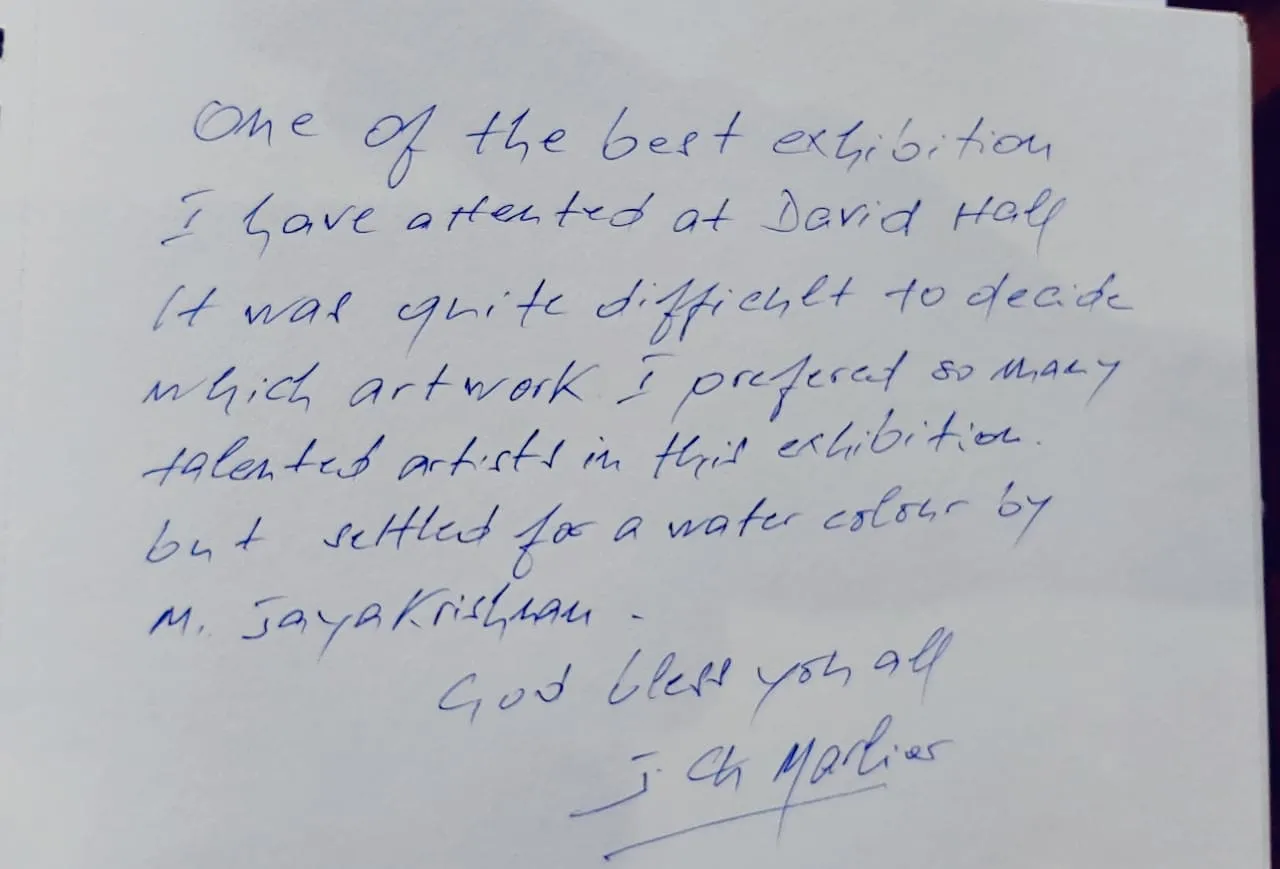 One of the best exhibition
I have attented at David Hall
It was quite difficult to decide
which artwork I prefered so many
talented artists in this exhibition.
but settled for a water colour by
M. Jayakrishnan.
God bless you all
J. Ch